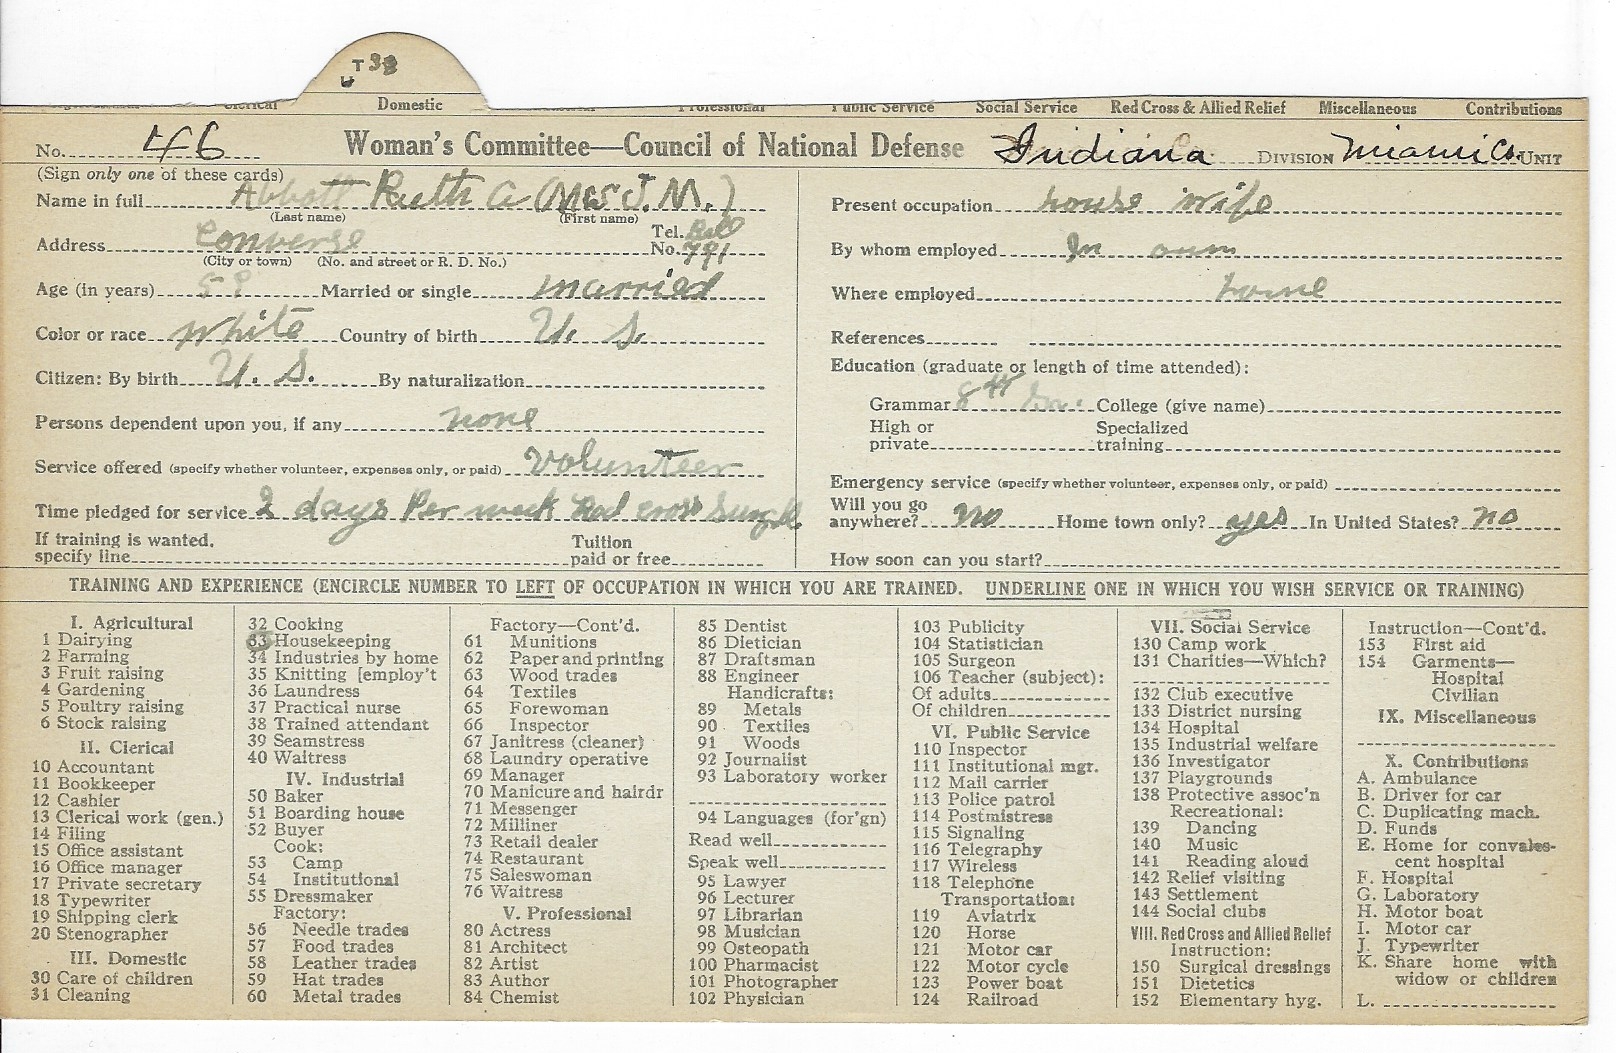 T 33
Domestic
Professional Public Service Social Service Red Cross & Allied Relief Miscellaneous Contributions
No. 46 Woman's Committee—Council of National Defense Indiana DIVISION Miami Co. UNIT
(Sign only one of these cards)
Name in full Abbott Ruth A (Mrs J. M.)
(Last name) (First name)
Address Converse Tel. Bell No. 791
(City or town) (No. and street or R. D. No.)
Age (in years) Married or single married
Color or race white Country of birth U. S.
Citizen: By birth U. S. By naturalization
Persons dependent upon you, if any none
Service offered (specify whether volunteer, expenses only, or paid) volunteer
Time pledged for service 2 days Per week Red cross
If training is wanted, specify line Tuition paid or free
Present occupation house wife
By whom employed In own
Where employed home
References
Education (graduate or length of time attended):
Grammar 8th Gr. College (give name)
High or private Specialized training
Emergency service (specify whether volunteer, expenses only, or paid)
Will you go anywhere? no Home town only? yes In United States? no
How soon can you start?
TRAINING AND EXPERIENCE (ENCIRCLE NUMBER TO LEFT OF OCCUPATION IN WHICH YOU ARE TRAINED. UNDERLINE ONE IN WHICH YOU WISH SERVICE OR TRAINING)
I. Agricultural
1 Dairying
2 Farming
3 Fruit raising
4 Gardening
5 Poultry raising
6 Stock raising
II. Clerical
10 Accountant
11 Bookkeeper
12 Cashier
13 Clerical work (gen.)
14 Filing
15 Office assistant
16 Office manager
17 Private secretary
18 Typewriter
19 Shipping clerk
20 Stenographer
III. Domestic
30 Care of children
31 Cleaning
32 Cooking
33 Housekeeping
34 Industries by home
35 Knitting [employ't
36 Laundress
37 Practical nurse
38 Trained attendant
39 Seamstress
40 Waitress
IV. Industrial
50 Baker
51 Boarding house
52 Buyer
Cook:
53 Camp
54 Institutional
55 Dressmaker
Factory:
56 Needle trades
57 Food trades
58 Leather trades
59 Hat trades
60 Metal trades
Factory—Cont'd.
61 Munitions
62 Paper and printing
63 Wood trades
64 Textiles
65 Forewoman
66 Inspector
67 Janitress (cleaner)
68 Laundry operative
69 Manager
70 Manicure and hairdr
71 Messenger
72 Milliner
73 Retail dealer
74 Restaurant
75 Saleswoman
76 Waitress
V. Professional
80 Actress
81 Architect
82 Artist
83 Author
84 Chemist
85 Dentist
86 Dietician
87 Draftsman
88 Engineer
Handicrafts:
89 Metals
90 Textiles
91 Woods
92 Journalist
93 Laboratory worker
94 Languages (for'gn)
Read well
Speak well
95 Lawyer
96 Lecturer
97 Librarian
98 Musician
99 Osteopath
100 Pharmacist
101 Photographer
102 Physician
103 Publicity
104 Statistician
105 Surgeon
106 Teacher (subject):
Of adults
Of children
VI. Public Service
110 Inspector
111 Institutional mgr.
112 Mail carrier
113 Police patrol
114 Postmistress
115 Signaling
116 Telegraphy
117 Wireless
118 Telephone
Transportation:
119 Aviatrix
120 Horse
121 Motor car
122 Motor cycle
123 Power boat
124 Railroad
VII. Social Service
130 Camp work
131 Charities—Which?
132 Club executive
133 District nursing
134 Hospital
135 Industrial welfare
136 Investigator
137 Playgrounds
138 Protective assoc'n
Recreational:
139 Dancing
140 Music
141 Reading aloud
142 Relief visiting
143 Settlement
144 Social clubs
VIII. Red Cross and Allied Relief
Instruction:
150 Surgical dressings
151 Dietetics
152 Elementary hyg.
Instruction—Cont'd.
153 First aid
154 Garments—
Hospital
Civilian
IX. Miscellaneous
X. Contributions
A. Ambulance
B. Driver for car
C. Duplicating mach.
D. Funds
E. Home for convales-
cent hospital
F. Hospital
G. Laboratory
H. Motor boat
I. Motor car
J. Typewriter
K. Share home with
widow or children
L.